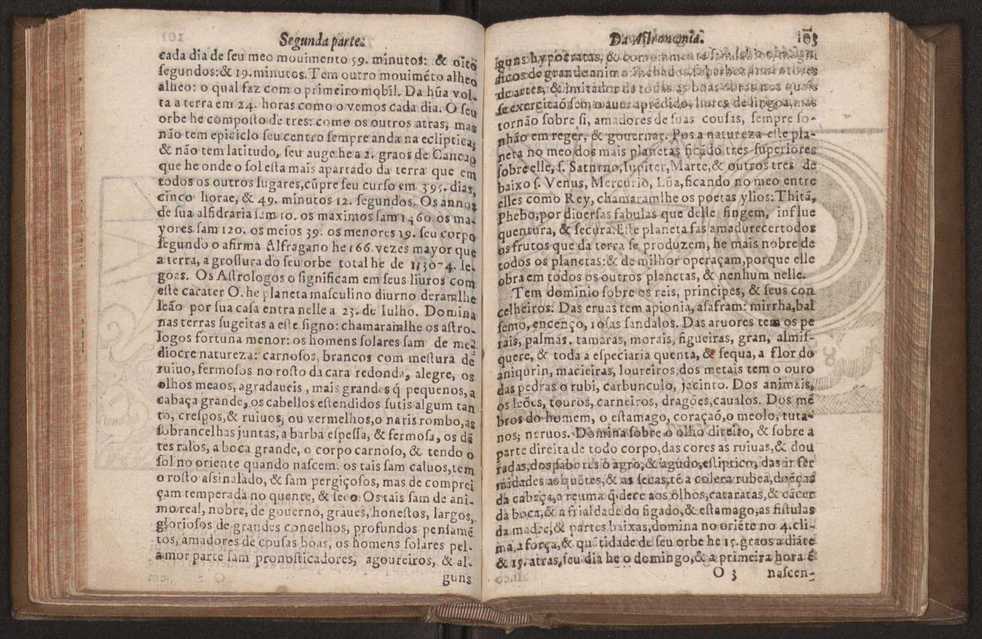 Segunda parte.
cada dia de seu meo mouimento 59. minutos: & oito
segundos: & 19. minutos. Tem outro mouimẽto alheo
alheo: o qual faz com o primeiro mobil. Da hũa vol-
ta a terra em 24. horas como o vemos cada dia. O seu
orbe he composto de tres: como os outros atras, mas
não tem epiciclo seu centro sempre anda na ecliptica;
& não tem latitudo, seu auge he a 2. graos de Cancão
que he onde o sol esta mais apartado da terra que em
todos os outros lugares, cũpre seu curso em 395. dias,
cinco horae, & 49. minutos 12. segundos. Os annos
de sua alfidraria sam 10. os maximos sam 1460. os ma-
yores sam 120. os meios 39. os menores 19. seu corpo
segundo o afirma Alfragano he 166. vezes mayor que
a terra, a grossura do seu orbe total he de le-
goas. Os Astrologos o significam em seus liuros com
este carater O. he planeta masculino diurno deramlhe
leão por sua casa entra nelle a 23. de Iulho. Domina
nas terras sugeitas a este signo: chamaramlhe os astro-
logos fortuna menor: os homens solares sam de me-
diocre natureza: carnosos, brancos com mestura de
ruiuo, fermosos no rosto da cara redonda, alegre, os
olhos meaos, agradaueis, mais grandes q̃ pequenos, a
cabaça grande, os cabellos estendidos sutis algum tan
to, crespos, & ruiuos, ou vermelhos, o naris rombo, as
sobrancelhas juntas, a barba espessa, & fermosa, os dẽ
tes ralos, a boca grande, o corpo carnoso, & tendo o
sol no oriente quando nascem. os tais sam caluos, tem
o rosto assinalado, & sam pergiçosos, mas de comprei
çam temperada no quente, & seco. Os tais sam de ani-
mo real, nobre, de gouerno, graues, honestos, largos,
gloriosos de grandes concelhos, profundos pensamẽ
tos, amadores de cousas boas, os homens solares pel-
a mor parte sam pronosticadores, agoureiros, & al-
guns
Da Astronomia. 103
guns hypocratas,
dicos de grande animo
de artes, & imitados de todas as boas obras nos quais
se exercitão sem o auer aprẽdido, liures de lingoa, mas
tornão sobre si, amadores de suas cousas, sempre so-
nhão em reger, & gouernar. Pos a natureza este pla-
neta no meo dos mais planetas ficãdo tres superiores
sobre elle, s. Saturno, Iupiter, Marte, & outros tres de
baixo s. Venus, Mercurio, Lũa, ficando no meo entre
elles como Rey, chamaramlhe os poetas ylios: Thitã,
Phebo, por diuersas fabulas que delle fingem, influe
quentura, & secura. Este planeta fas amadurecer todos
os frutos que da terra se produzem, he mais nobre de
todos os planetas: & de milhor operaçam, porque elle
obra em todos os outros planetas, & nenhum nelle.
Tem dominio sobre os reis, principes, & seus con
celheiros. Das eruas tem apionia, asafram: mirrha, bal
semo, encenço, rosas sandalos. Das aruores tem os pe
rais, palmas, tamaras, morais, figueiras, gran, almis-
quere, & toda a especiaria quenta, & sequa, a flor do
aniqurin, macieiras, loureiros, dos metais tem o ouro
das pedras o rubi, carbunculo, jacinto. Dos animais,
os leões, touros, carneiros, dragões, caualos. Dos mẽ
bros do homem, o estamago, coraçaõ, o meolo, tuta-
nos, neruos. Domina sobre o olho direito, & sobre a
parte direita de todo corpo, das cores as ruiuas, & dou
radas, dos sabores o agro, & agudo, estiptico, das infer
midades as quẽtes, & as secas, tẽ a colera rubea, doẽças
da cabeça, o reuma q̃ dece aos olhos, cataratas, & cãcer
da boca, & a frialdade do figado, & estamago, as fistulas
da madre, & partes baixas, domina no oriẽte no 4. cli-
ma, a força, & quãtidade de seu orbe he 15. graos a diãte
& 15. atras, seu dia he o domingo, & a primeira hora é
O 3 nascen-